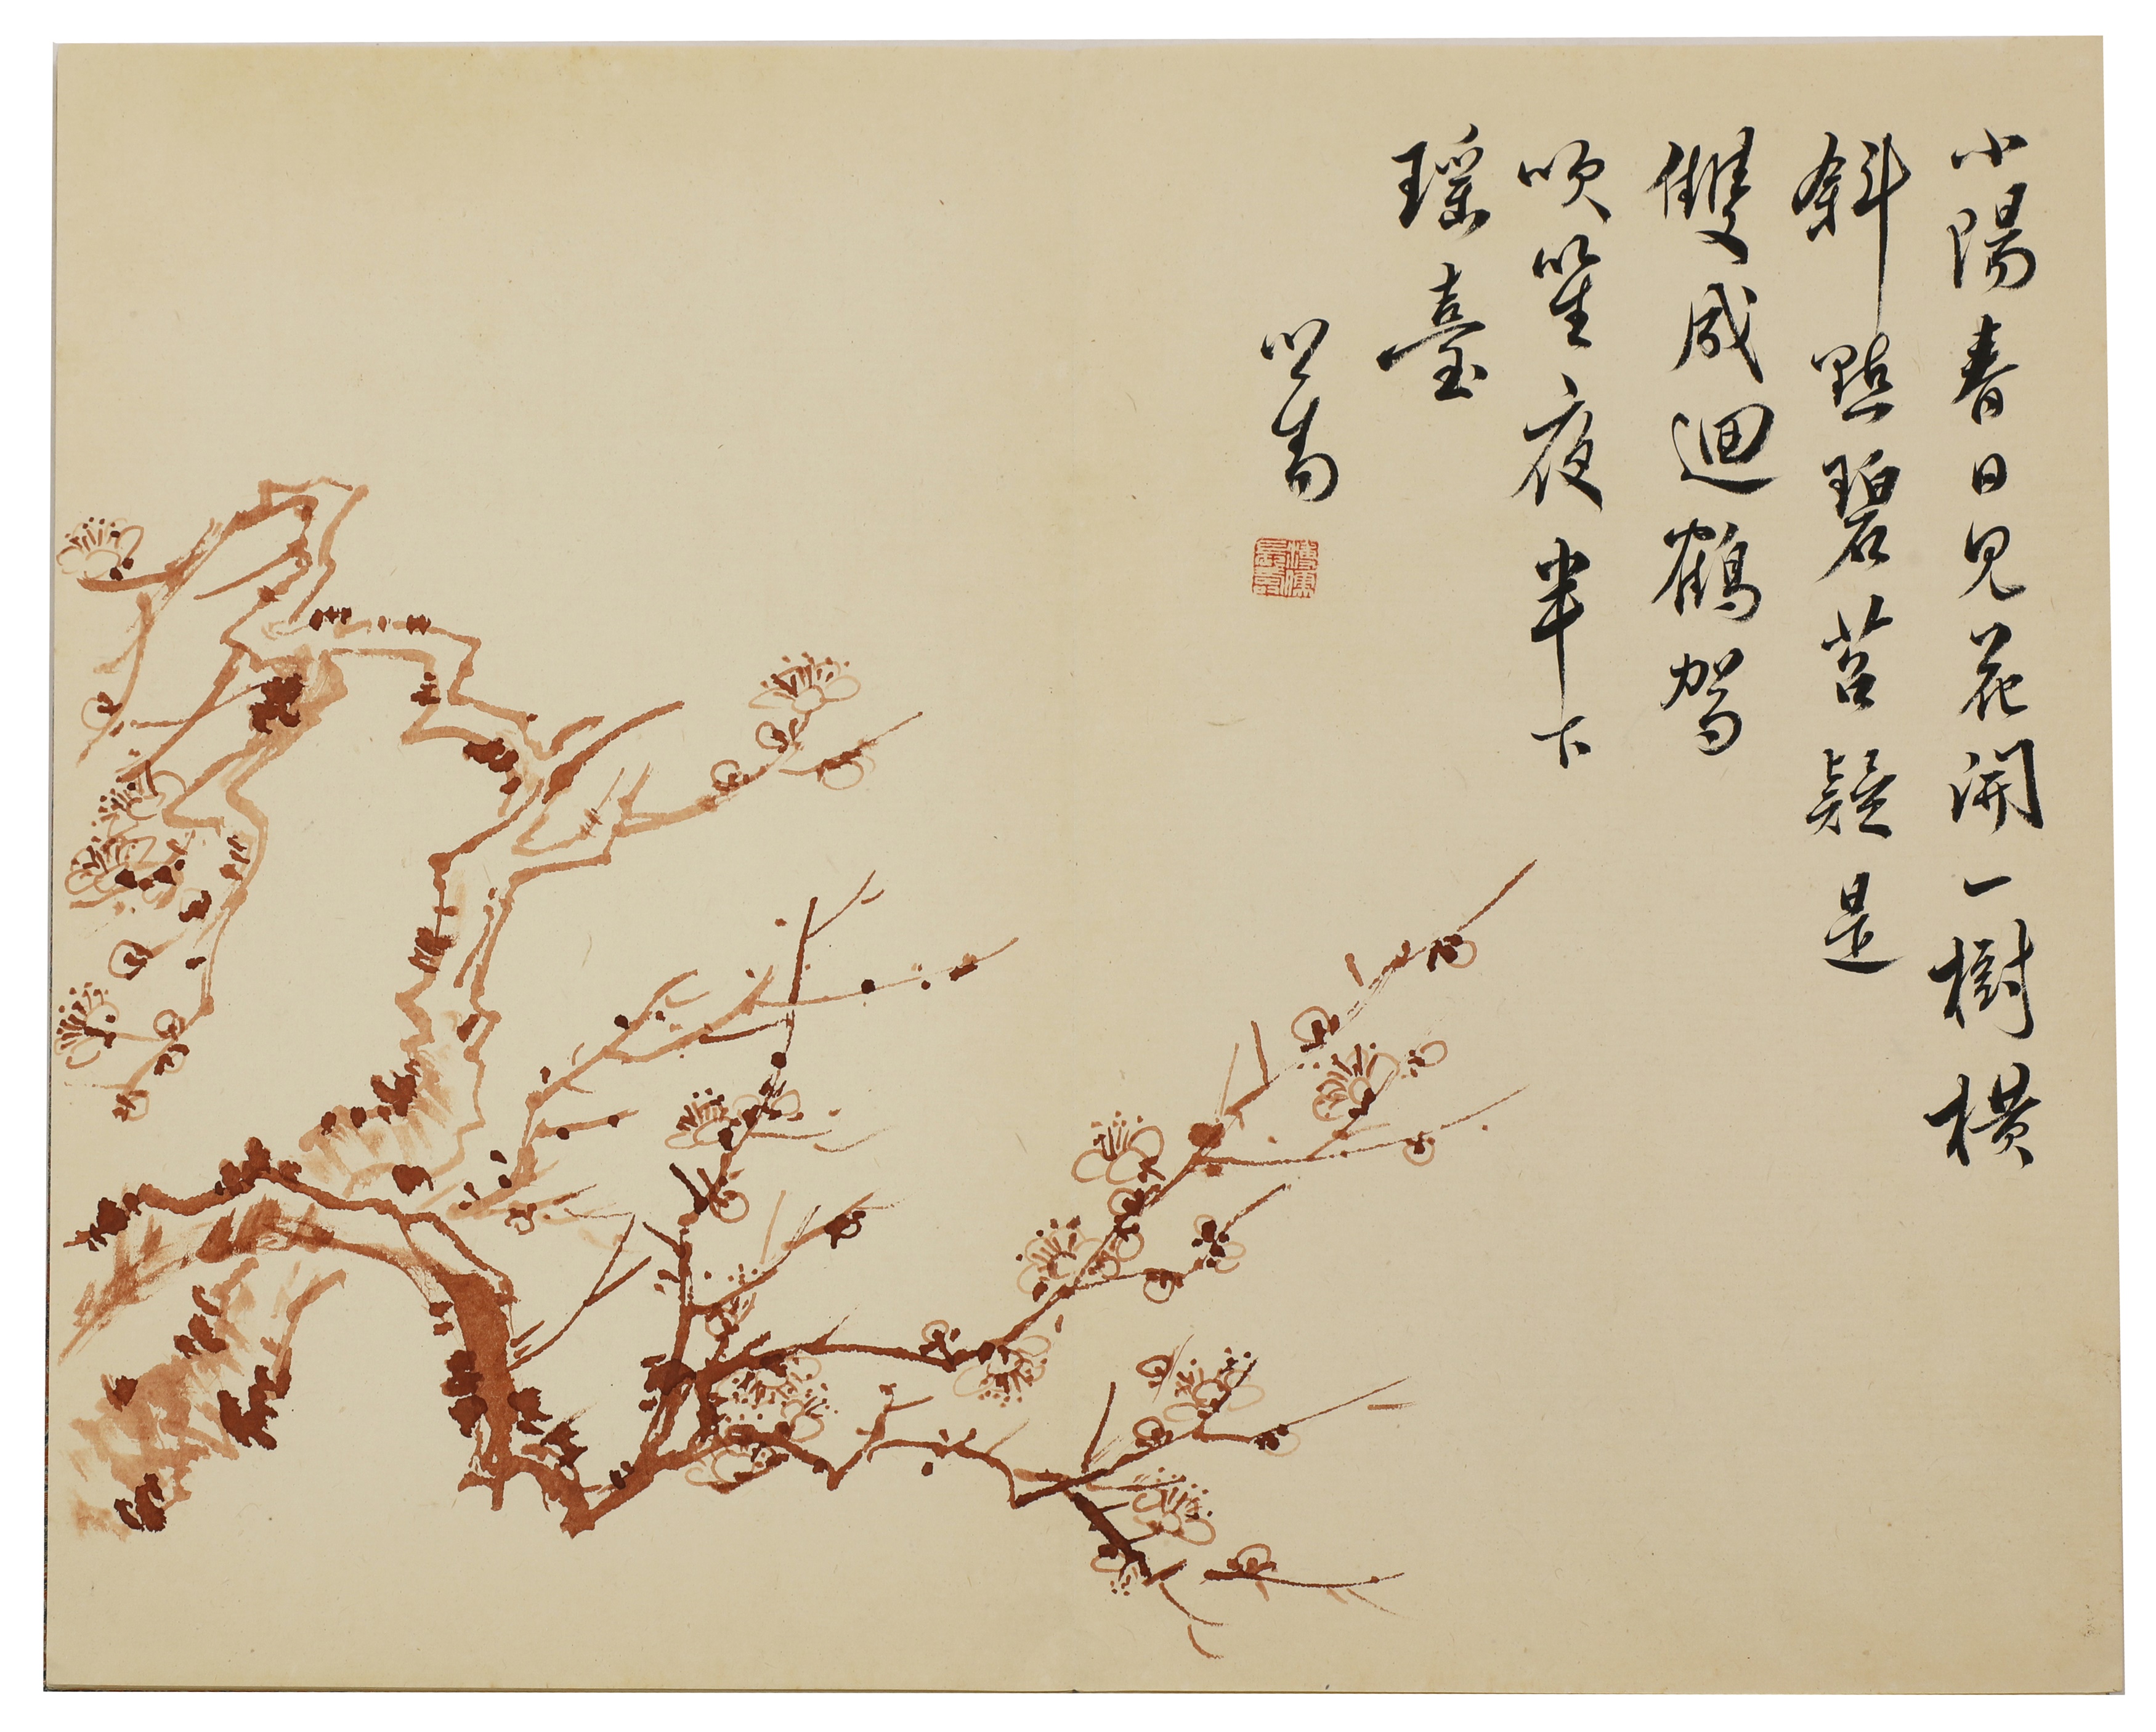 小陽春日見花開一樹橫
斜點碧苔疑是
雙成迴鶴駕
吹笙夜半下
瑤臺
心畬
溥儒